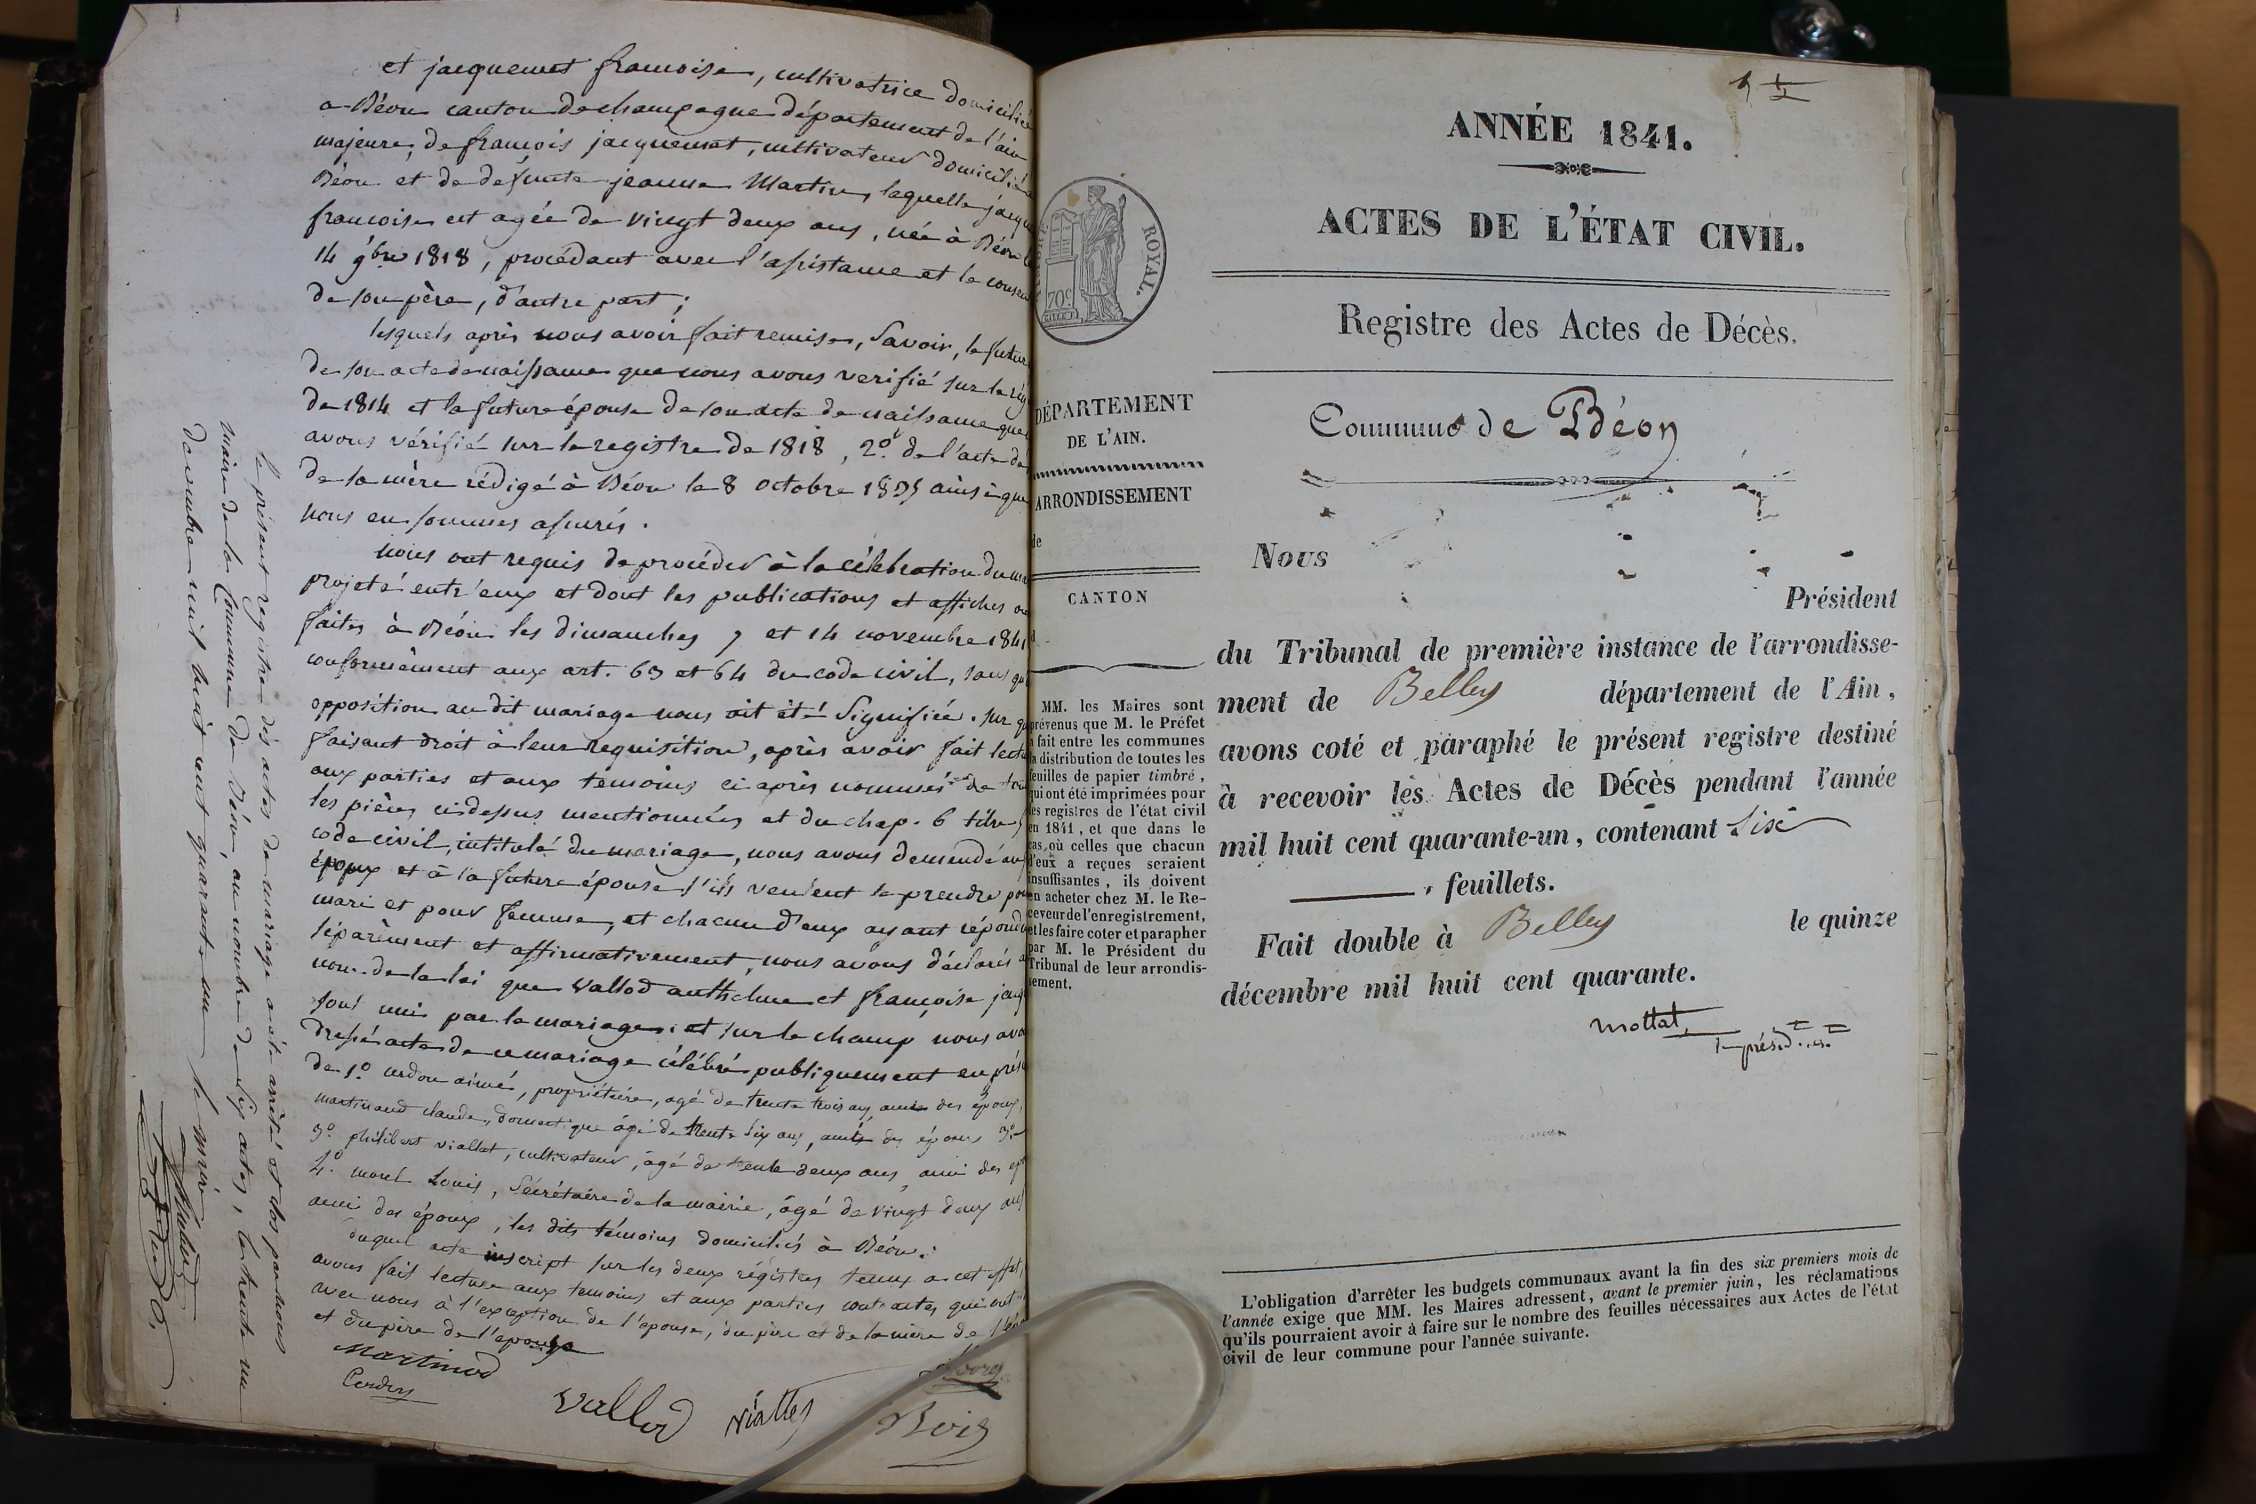 et jacquemet francoise, cultivatrice domiciliée
a Béon canton de champagne département de l'ain
majeure, de françois jacquemet, cultivateur domicilié
Béon et de défunte jeanne Martin, laquelle jacqu
francoise est agée de vingt deux ans, née à Béon le
14 9bre 1818, procédant avec l'assistance et le conse
de son père, d'autre part;
lesquels après nous avoir fait remise, Savoir, le futur
de son acte de naissance que nous avons verifié sur le rég
de 1814 et la future épouse de son acte de naissance que
avons vérifié sur le registre de 1818, 2º de l'acte de
de la mère rédigé à Béon le 8 octobre 1835 ainsi que
nous en sommes assurés.
nous ont requis de procéder à la célébration du ma
projeté entr'eux et dont les publications et affiches on
faites à Béon les dimanches 7 et 14 novembre 1841
conformément aux art. 63 et 64 du code civil, sans qu'
opposition au dit mariage nous ait été Signifiée. sur qu
faisant droit à leur requisition, après avoir fait lectu
aux parties et aux temoins ci après nommés de tou
les pièces ci dessus mentionnées et du chap. 6 titre 5
code civil, intitulé du mariage, nous avons demandé au f
époux et à la future épouse s'ils veulent se prendre pour
mari et pour femme, et chacun d'eux ayant répondu
séparément et affirmativement, nous avons déclaré a
nom de la loi que Vallod anthelme et françoise jacq
sont unis par le mariage; et sur le champ nous avo
dressé acte de ce mariage célébré publiquement en prés
de 1º cerdon aimé, propriétaire, agé de trente trois ans, ami des époux,
martinand claude, domestique âgé de trente six ans, ami des époux
3º philibert viallet, cultivateur, âgé de trente deux ans, ami des ep
4º morel Louis, Sécrétaire de la mairie, âgé de vingt deux ans
ami des époux, les dits témoins domiciliés à Béon.
duquel acte inscript sur les deux régistres tenus a cet effet,
avons fait lecture aux temoins et aux parties contractes qui ont
avec nous à l'exception de l'epouse, du père et de la mère de l'ép
et du père de l'epouse
Martinod
Cerdon
Vallod
Viallet
Bois
le présent registre des actes de mariage a été arrêté et clos par nous
maire de la Commune de Béon, au nombre de Six actes, le trente un
décembre mil huit cent quarante un
le maire
ANNÉE 1841.
ACTES DE L'ÉTAT CIVIL.
Registre des Actes de Décès.
ROYAL.
70c
DÉPARTEMENT
DE L'AIN.
ARRONDISSEMENT
de
CANTON
Commune de Béon
Nous
Président
du Tribunal de première instance de l'arrondisse-
ment de Belley département de l'Ain,
avons coté et paraphé le présent registre destiné
à recevoir les Actes de Décès pendant l'année
mil huit cent quarante-un, contenant Six
feuillets.
Fait double à Belley le quinze
décembre mil huit cent quarante.
Mottat
MM. les Maires sont
prévenus que M. le Préfet
a fait entre les communes
la distribution de toutes les
feuilles de papier timbré,
qui ont été imprimées pour
les registres de l'état civil
en 1841, et que dans le
cas, où celles que chacun
d'eux a reçues seraient
insuffisantes, ils doivent
en acheter chez M. le Re-
ceveur de l'enregistrement,
et les faire coter et parapher
par M. le Président du
Tribunal de leur arrondis-
sement.
L'obligation d'arrêter les budgets communaux avant la fin des six premiers mois de
l'année exige que MM. les Maires adressent, avant le premier juin, les réclamations
qu'ils pourraient avoir à faire sur le nombre des feuilles nécessaires aux Actes de l'état
civil de leur commune pour l'année suivante.